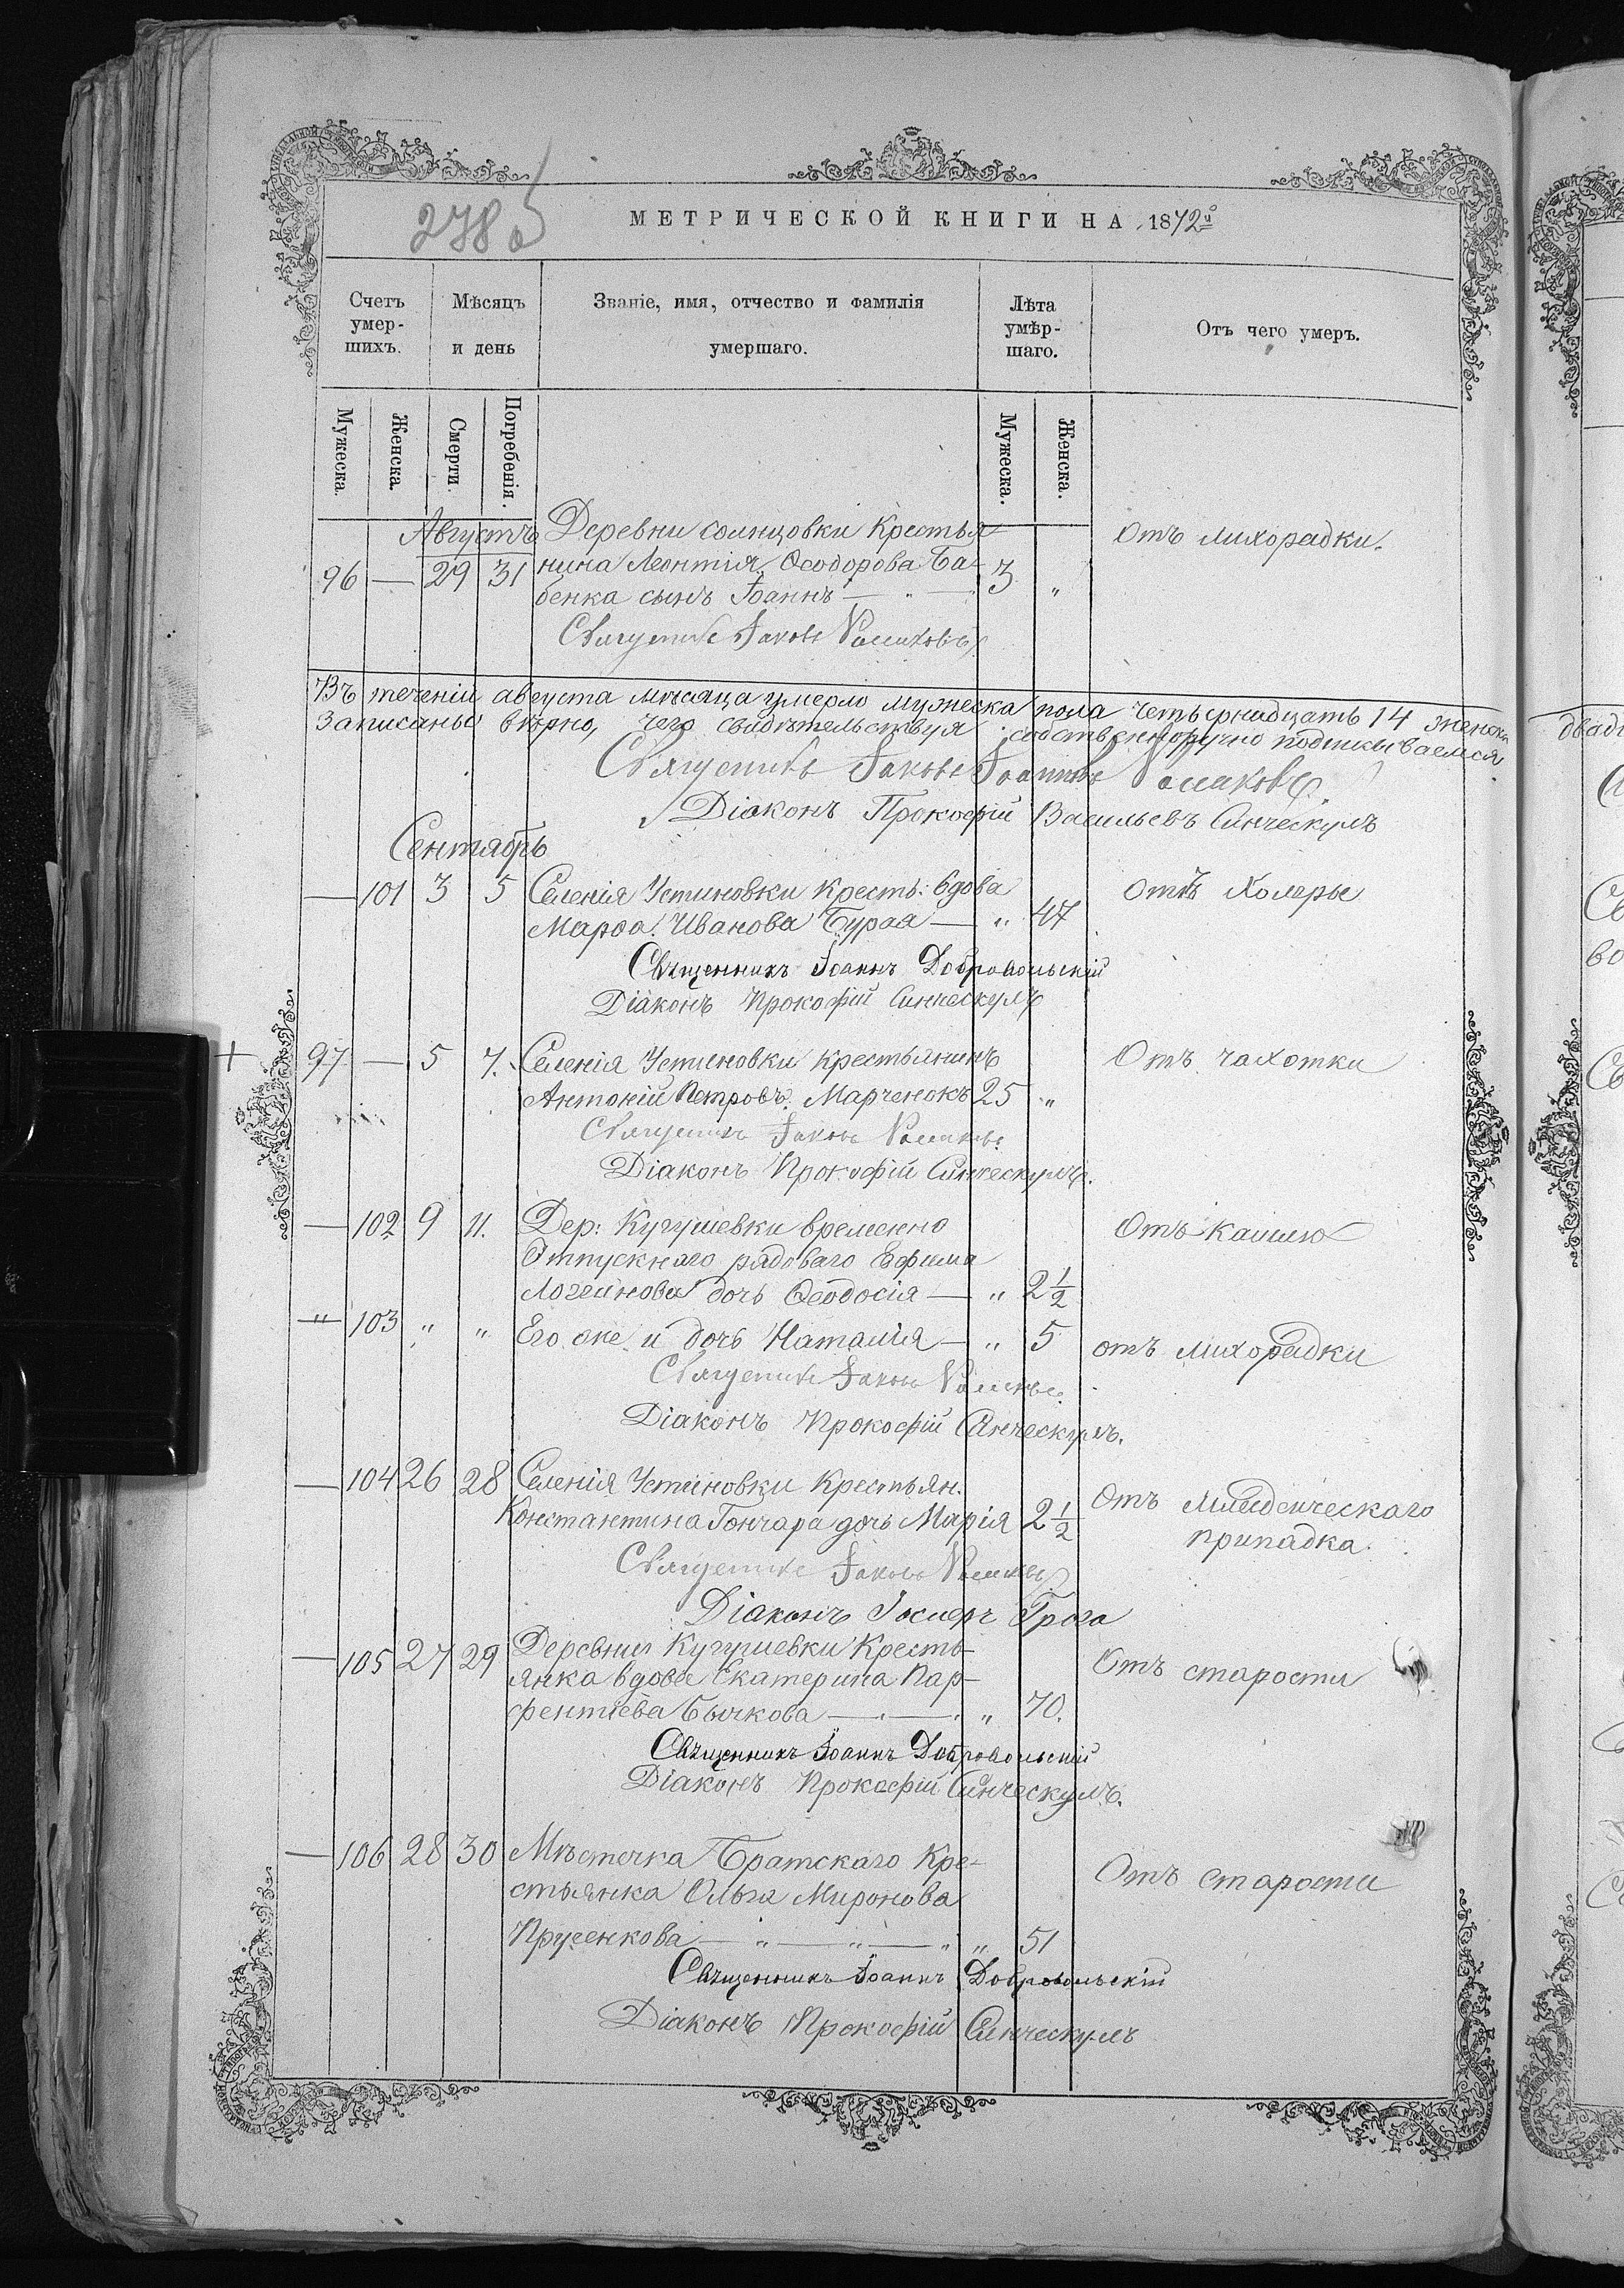 278 об
МЕТРИЧЕСКОЙ КНИГИ НА 1872й
Счетъ умер-шихъ.
Мѣсяцъ и день
Званіе, имя, отчество и фамилія умершаго.
Лѣта умѣр-шаго.
Отъ чего умеръ.
Мужеска. Женска. Смерти. Погребенія. Мужеска. Женска.
Августъ Деревни солнцовки Крестья- Отъ лихорадки.
96 — 29 31 нина Леонтія Ѳеодорова Ба- 3 „
бенка сынъ Іоаннъ — „ —
Священникъ Іаковъ
Въ теченіи августа мѣсяца умерло мужеска пола четырнадцать 14 женска
Записаны вѣрно, чего свидѣтельствуя собственноручно подписываемся
Священникъ Іаковъ Іоанновъ
Діаконъ Прокофій Васильевъ Синческулъ
Сентябрь
— 101 3 5 Селенія Устиновки Кресть: вдова Отъ Холеры
Марѳа Иванова Бурая — „ 47
Священникъ Іоаннъ Добровольскій
Діаконъ Прокофій Синческулъ
+ 97 — 5 7. Селенія Устиновки крестьянинъ Отъ чахотки
Антоній Петровъ Марченокъ 25 „
Священникъ Іаковъ
Діаконъ Прокофій Синческулъ.
— 102 9 11. Дер: Кугушевки временно Отъ кашлю
Отпускнаго рядоваго Ефима
Логвинова дочь Ѳеодосія — „ 2 1/2
— „ 103 „ „ Его же и дочь Наталія — „ 5 отъ лихорадки
Священникъ Іаковъ
Діаконъ Прокофій Синческулъ.
— 104 26 28 Селенія Устиновки Крестьян. Отъ Младенческаго
Константина Гончара дочь Марія 2 1/2 припадка.
Священникъ Іаковъ
Діаконъ
— 105 27 29 Деревни Кугушевки Кресть- Отъ старости
янка вдова Екатерина Пар-
фентіева Бычкова — „ — „ 70.
Священникъ Іоаннъ Добровольскій
Діаконъ Прокофій Синческулъ.
— 106 28 30 Мѣстечка Братскаго Кре- Отъ старости
стьянка Ольга Миронова
Прусенкова — „ — „ — „ „ 51
Священникъ Іоаннъ Добровольскій
Діаконъ Прокофій Синческулъ